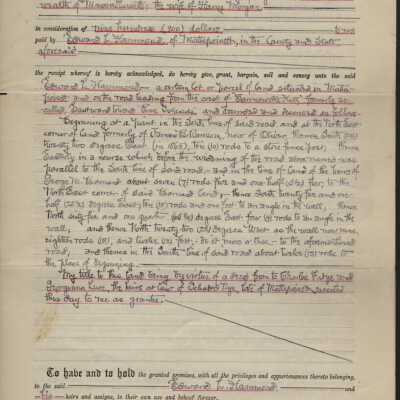 wealth of Massachusetts; the wife of Henry Morgan
in consideration of nine hundred (900) dollars to me
paid by Edward L. Hammond of Mattapoisett, in the County and State
aforesaid
the receipt whereof is hereby acknowledged, do hereby give, grant, bargain, sell and convey unto the said
Edward L. Hammond — a certain lot or parcel of land situated in Matta-
poisett and on the road leading from the of Hammonds formerly so
called, Eastward toward Pine and bounded and described as follows
Beginning at a point in the South line of said road and at the North
corner of land formerly of now of thence South
twenty two degrees West (in 1865), ten (10) rods to a stone fence post; thence
in a course which before the widening of the road above named was
parallel to the South line of said road — and in the line of land of the heirs of
George M. Hammond about seven (7) rods five and one half (5½) feet to the
North East corner of said Hammond land; thence South twenty five and one
half (25½) degrees East, ten (10) rods and one foot to an angle in the wall, thence
North sixty five and one quarter (65¼) degrees East four (4) rods to an angle in the
wall, and thence North twenty two (22) degrees West as the wall now runs,
eighteen rods (18), and twelve (12) feet, be it more or less — to the aforementioned
road, and thence in the South line of said road about twelve (12) rods to
the place of beginning.
My title to this land being by virtue of a deed from Charles Tripp and
Georgianna the heirs at law of Tripp, late of Mattapoisett, executed
this day to me as grantee.
To have and to hold the granted premises, with all the privileges and appurtenances thereto belonging,
to the said Edward L. Hammond and
his heirs and assigns, to their own use and behoof forever.